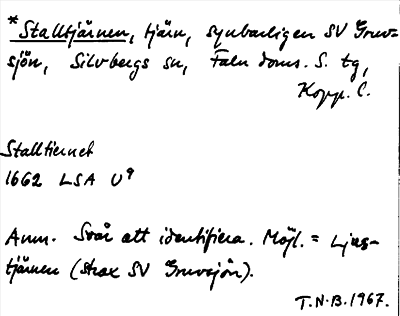 * Stalltjärnen, tjärn, synbarligen SV Gruv-
sjön, Silvbergs sn, Falu doms. S. tg,
Kopp. l.
Stalltiernet
1662 LSA U9
Anm. Svår att identifiera. Möjl. = Ljus-
tjärnen (strax SV Gruvsjön).
T.N.B. 1967.